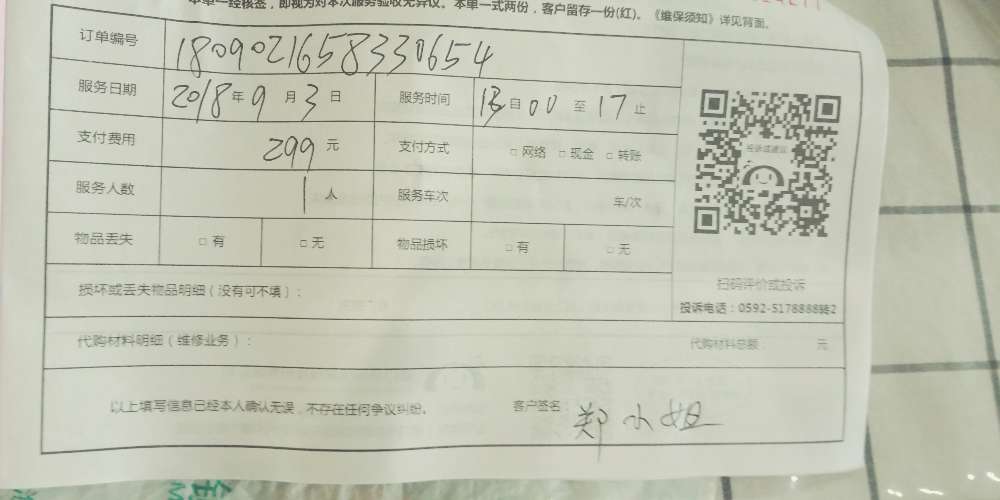 本单一经核签，即视为对本次服务验收无异议。本单一式两份，客户留存一份(红)。《维保须知》详见背面。
订单编号 1809021658330654
服务日期 2018年9月3日 服务时间 13自00至17止
支付费用 299元 支付方式 □网络 □现金 □转账
投诉或建议
服务人数 1人 服务车次 车/次
物品丢失 □有 □无 物品损坏 □有 □无
扫码评价或投诉
损坏或丢失物品明细（没有可不填）：
投诉电话：0592-5178888转2
代购材料明细（维修业务）： 代购材料总额： 元
以上填写信息已经本人确认无误，不存在任何争议纠纷。 客户签名：郑小姐